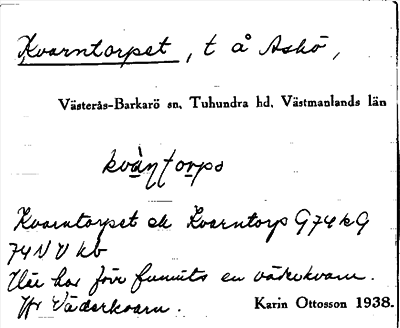 Kvarntorpet, t å Askö,
Västerås-Barkarö sn, Tuhundra hd, Västmanlands län
kvà̱ηto̱rpə
Kvarntorpet ek Kvarntorp G74kG
74NV kb
Här har förr funnits en väderkvarn.
Jfr Väderkvarn.
Karin Ottosson 1938.